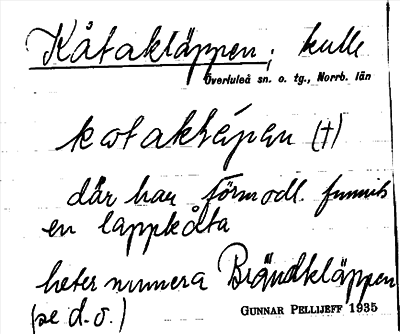 Kåtakläppen; kulle
Överluleå sn. o. tg., Norrb. län
kotaklépen (†)
där har förmodl. funnits
en lappkåta
heter numera Brändkläppen
(se d. o.)
GUNNAR PELLIJEFF 1935